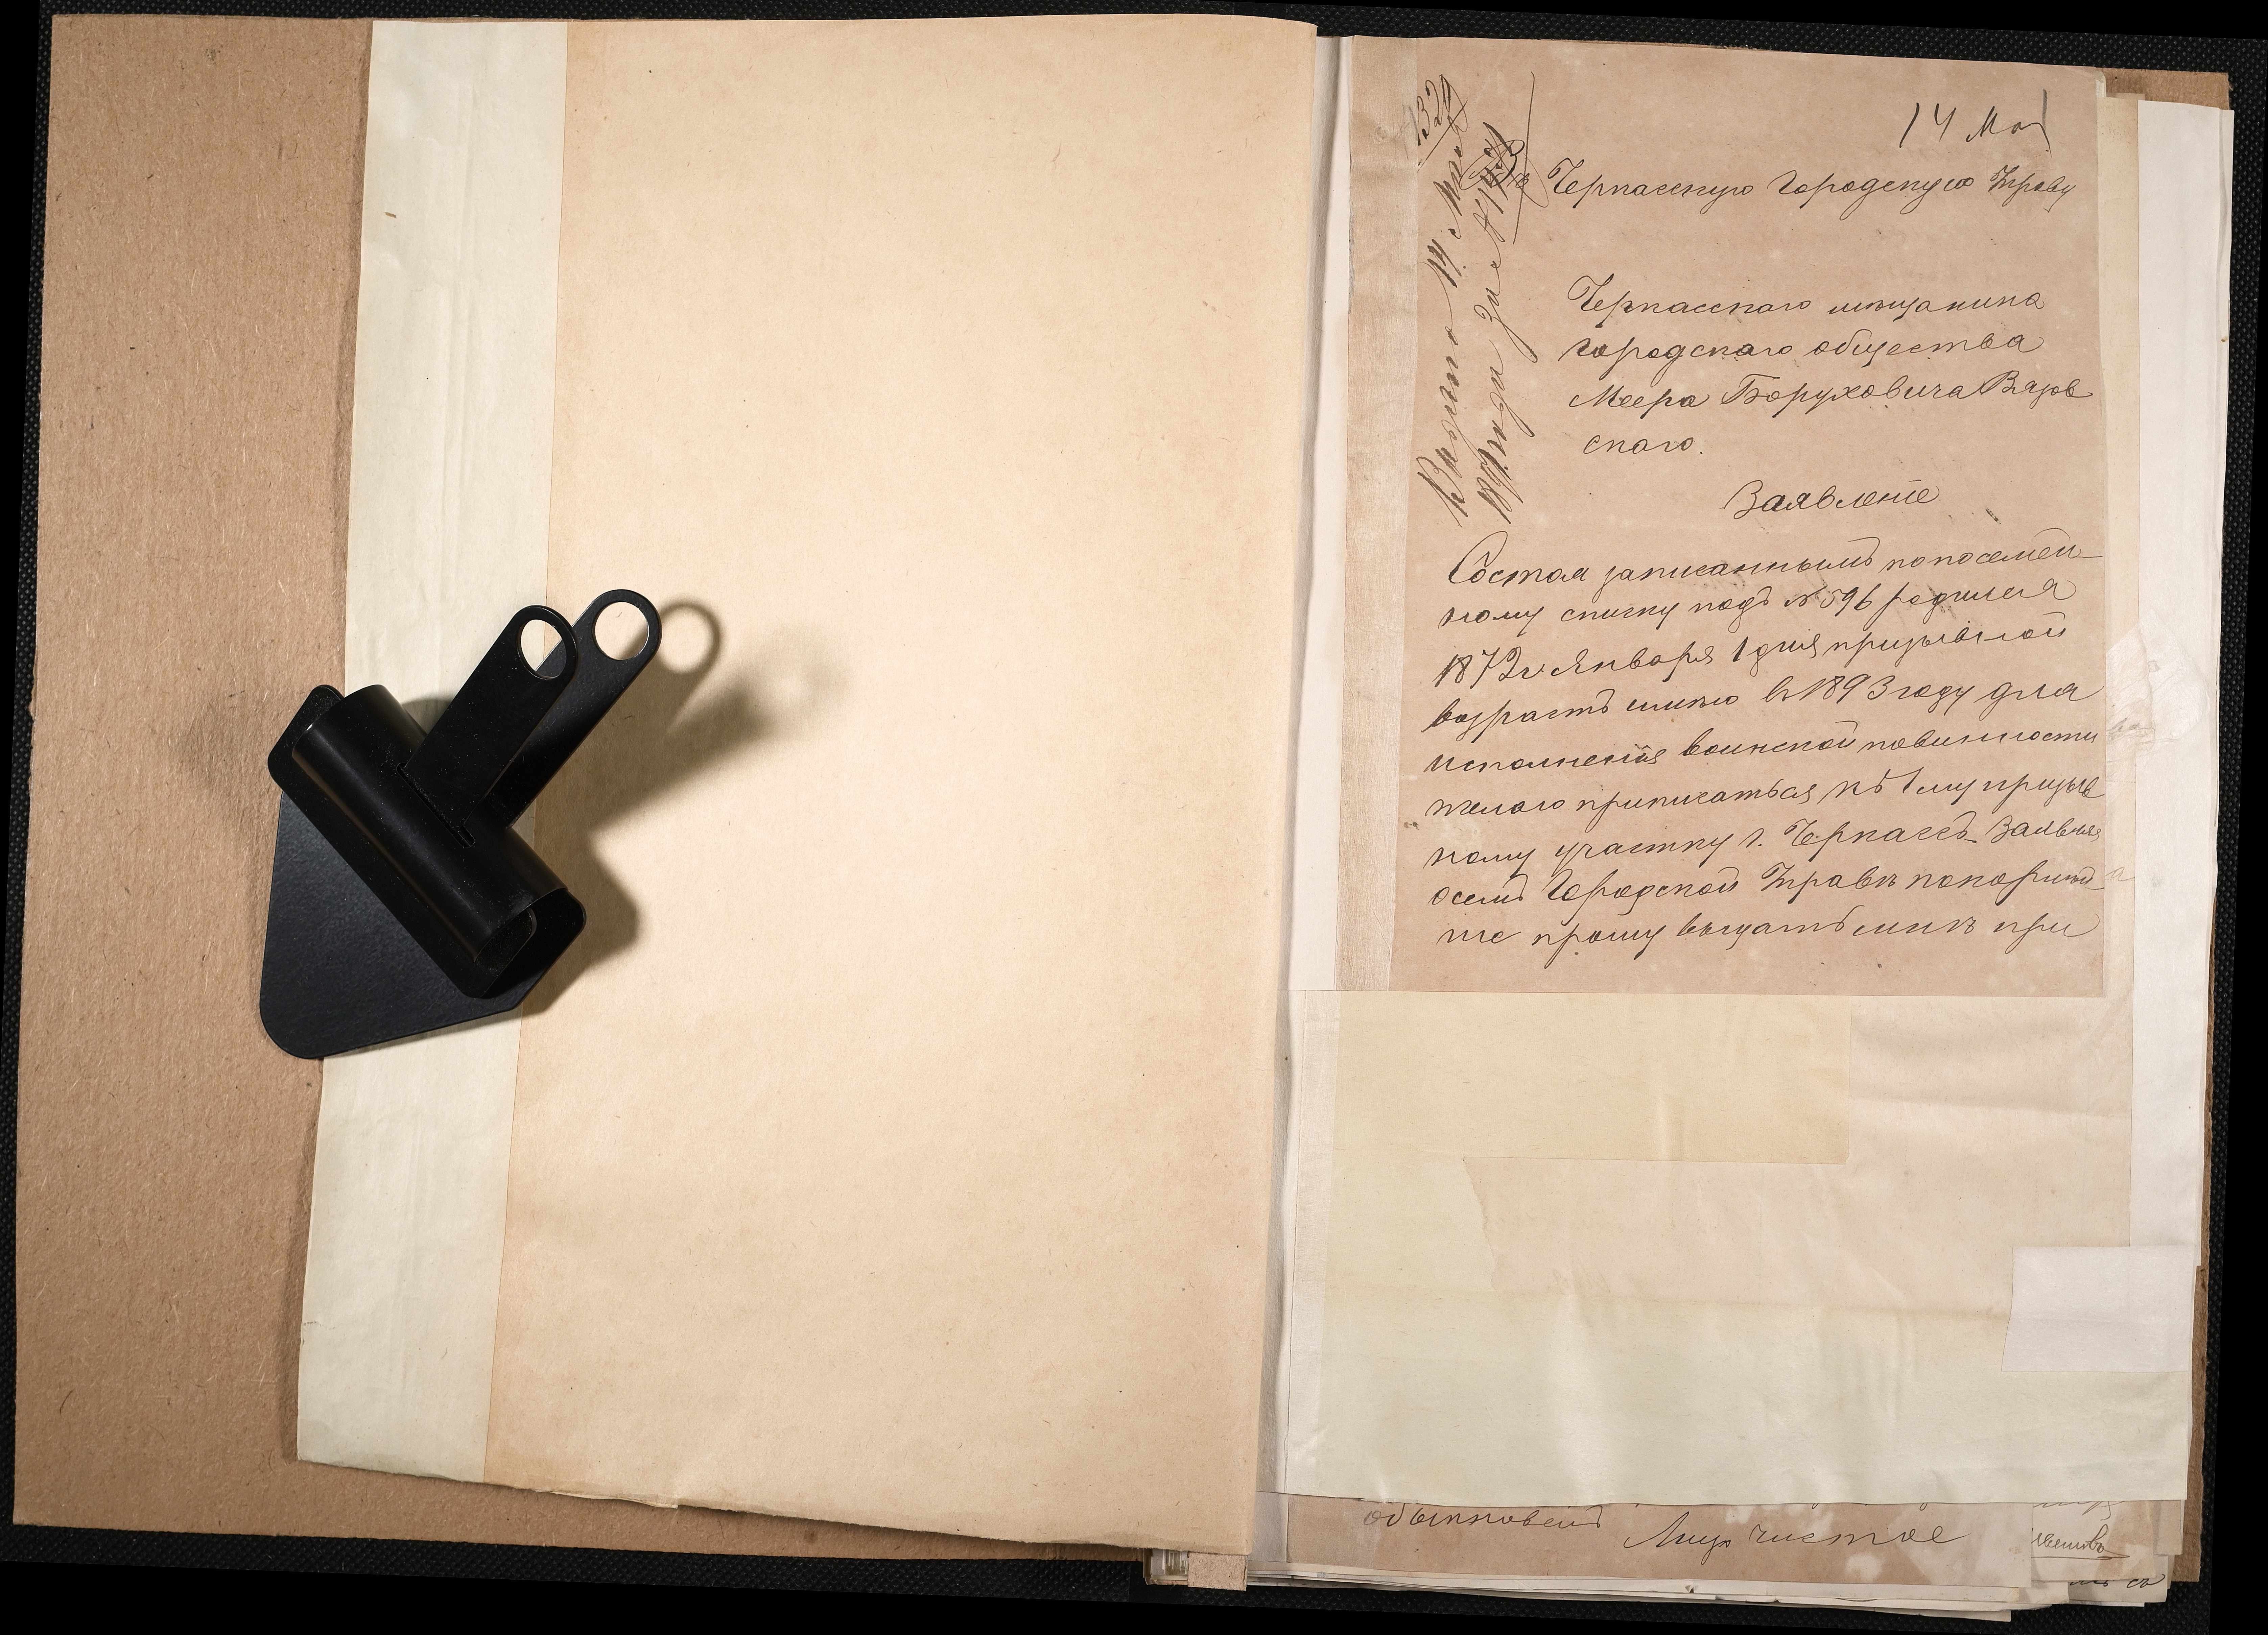 14 Мая
1329
Въ Черкасскую Городскую Управу
Черкасскаго мѣщанина
городскаго общества
Меера Боруховича Вазов
скаго.
Заявленіе
Состоя записаннымъ по посемей-
ному списку подъ № 596 родился
1872 г Января 1 дня призывной
возрастъ имѣю въ 1893 году для
исполненія воинской повинности
желаю приписаться къ 1 му призыв
ному участку г. Черкассъ Заявляя
о семъ Городской Управѣ покорнѣй
ше прошу выдать мнѣ при
обыкновен
Лицо чистое